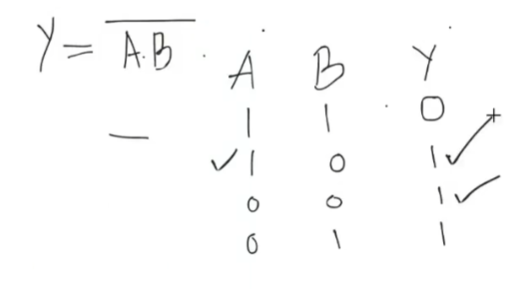 Y = \overline{A.B}
A B Y
1 1 0
✓1 0 1✓
0 0 1✓
0 1 1